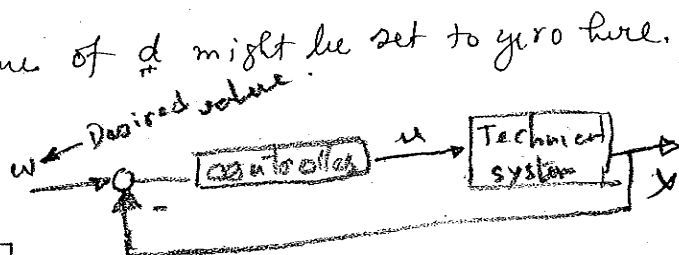 of d might be set to zero here.
Desired value.
w
controller
u
Technical
system
y
-